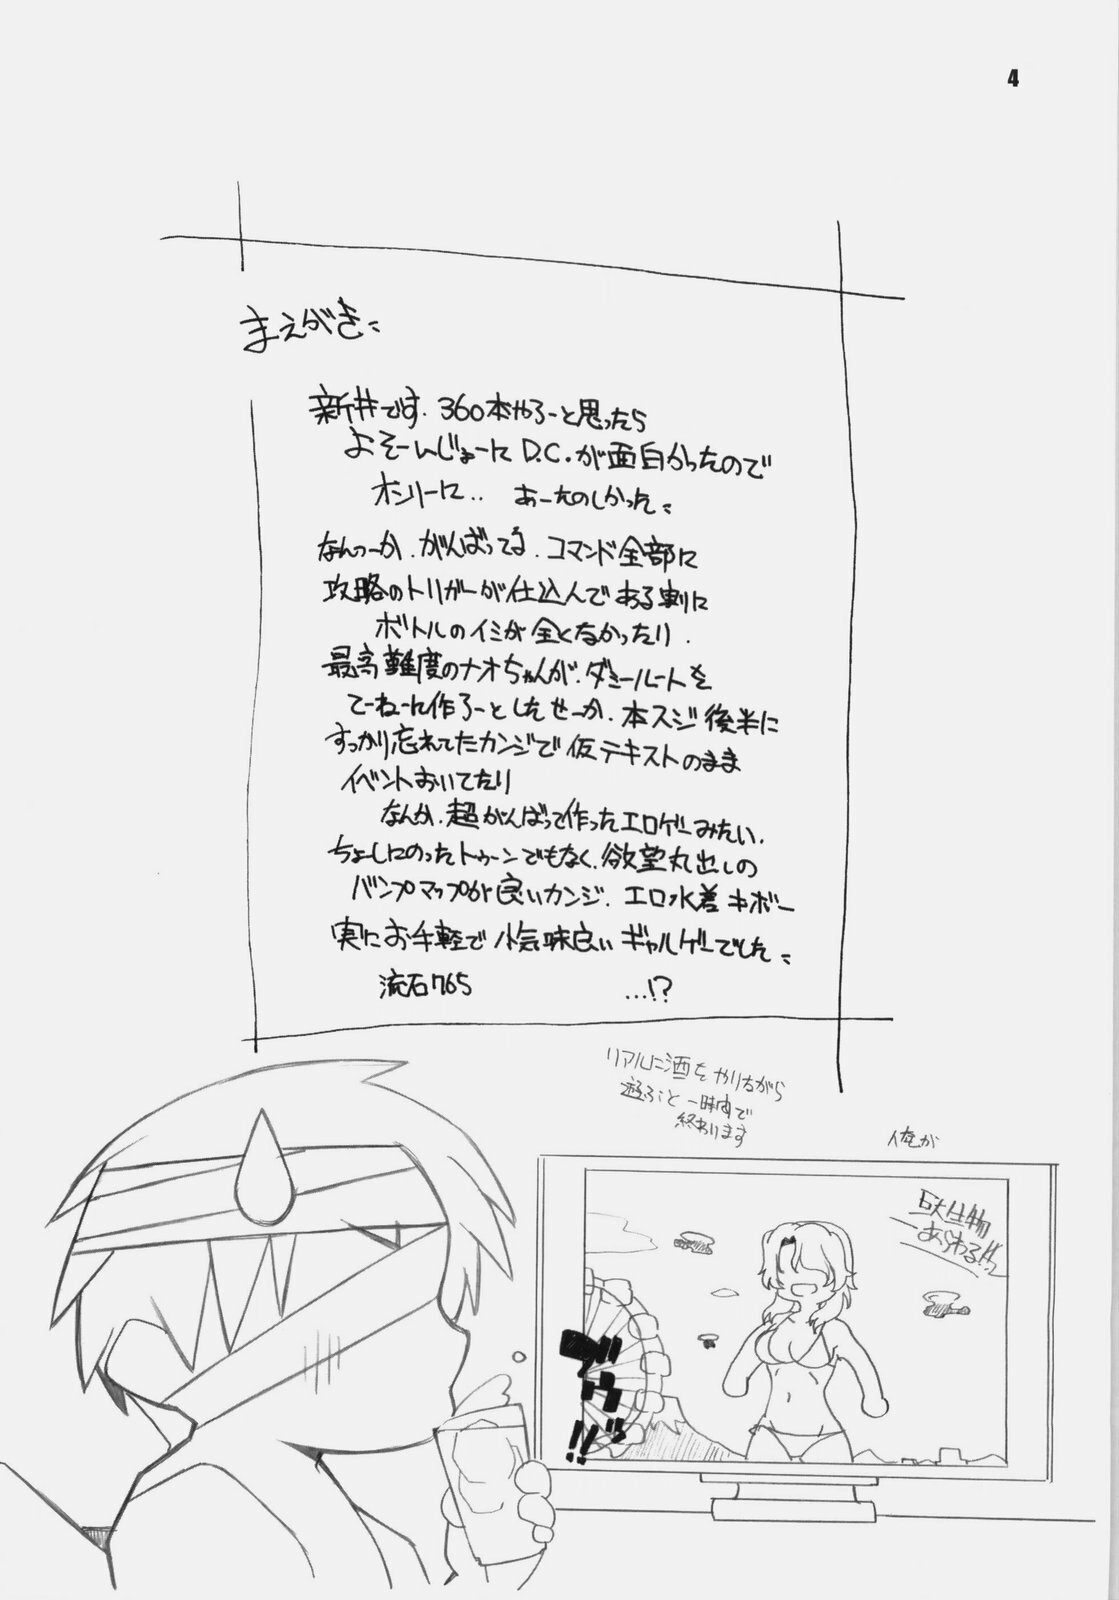 4
まえがき：
新井です．360本やろーと思ったら
よそーいじょーに D.C.が面白かったので
オンリーに‥ あーたのしかった：
なんつーか．がんばってる．コマンド全部に
攻略のトリガーが仕込んである割に
ボトルのイミが全くなかったり．
最高難度のナオちゃんが．ダミールートを
てーねーに作ろーとしたせーか．本スジ後半に
すっかり忘れてたカンジで仮テキストのまま
イベントおいてたり
なんか．超がんばって作ったエロゲーみたい．
ちょーしにのったトゥーンでもなく．欲望丸出しの
バンプマップが良いカンジ．エロ水着キボー
実にお手軽で小気味良いギャルゲーでした：
流石765 …!?
リアルに酒をやりながら
遊ぶと一時間で
終わります
俺が
巨大生物
あらわる!!